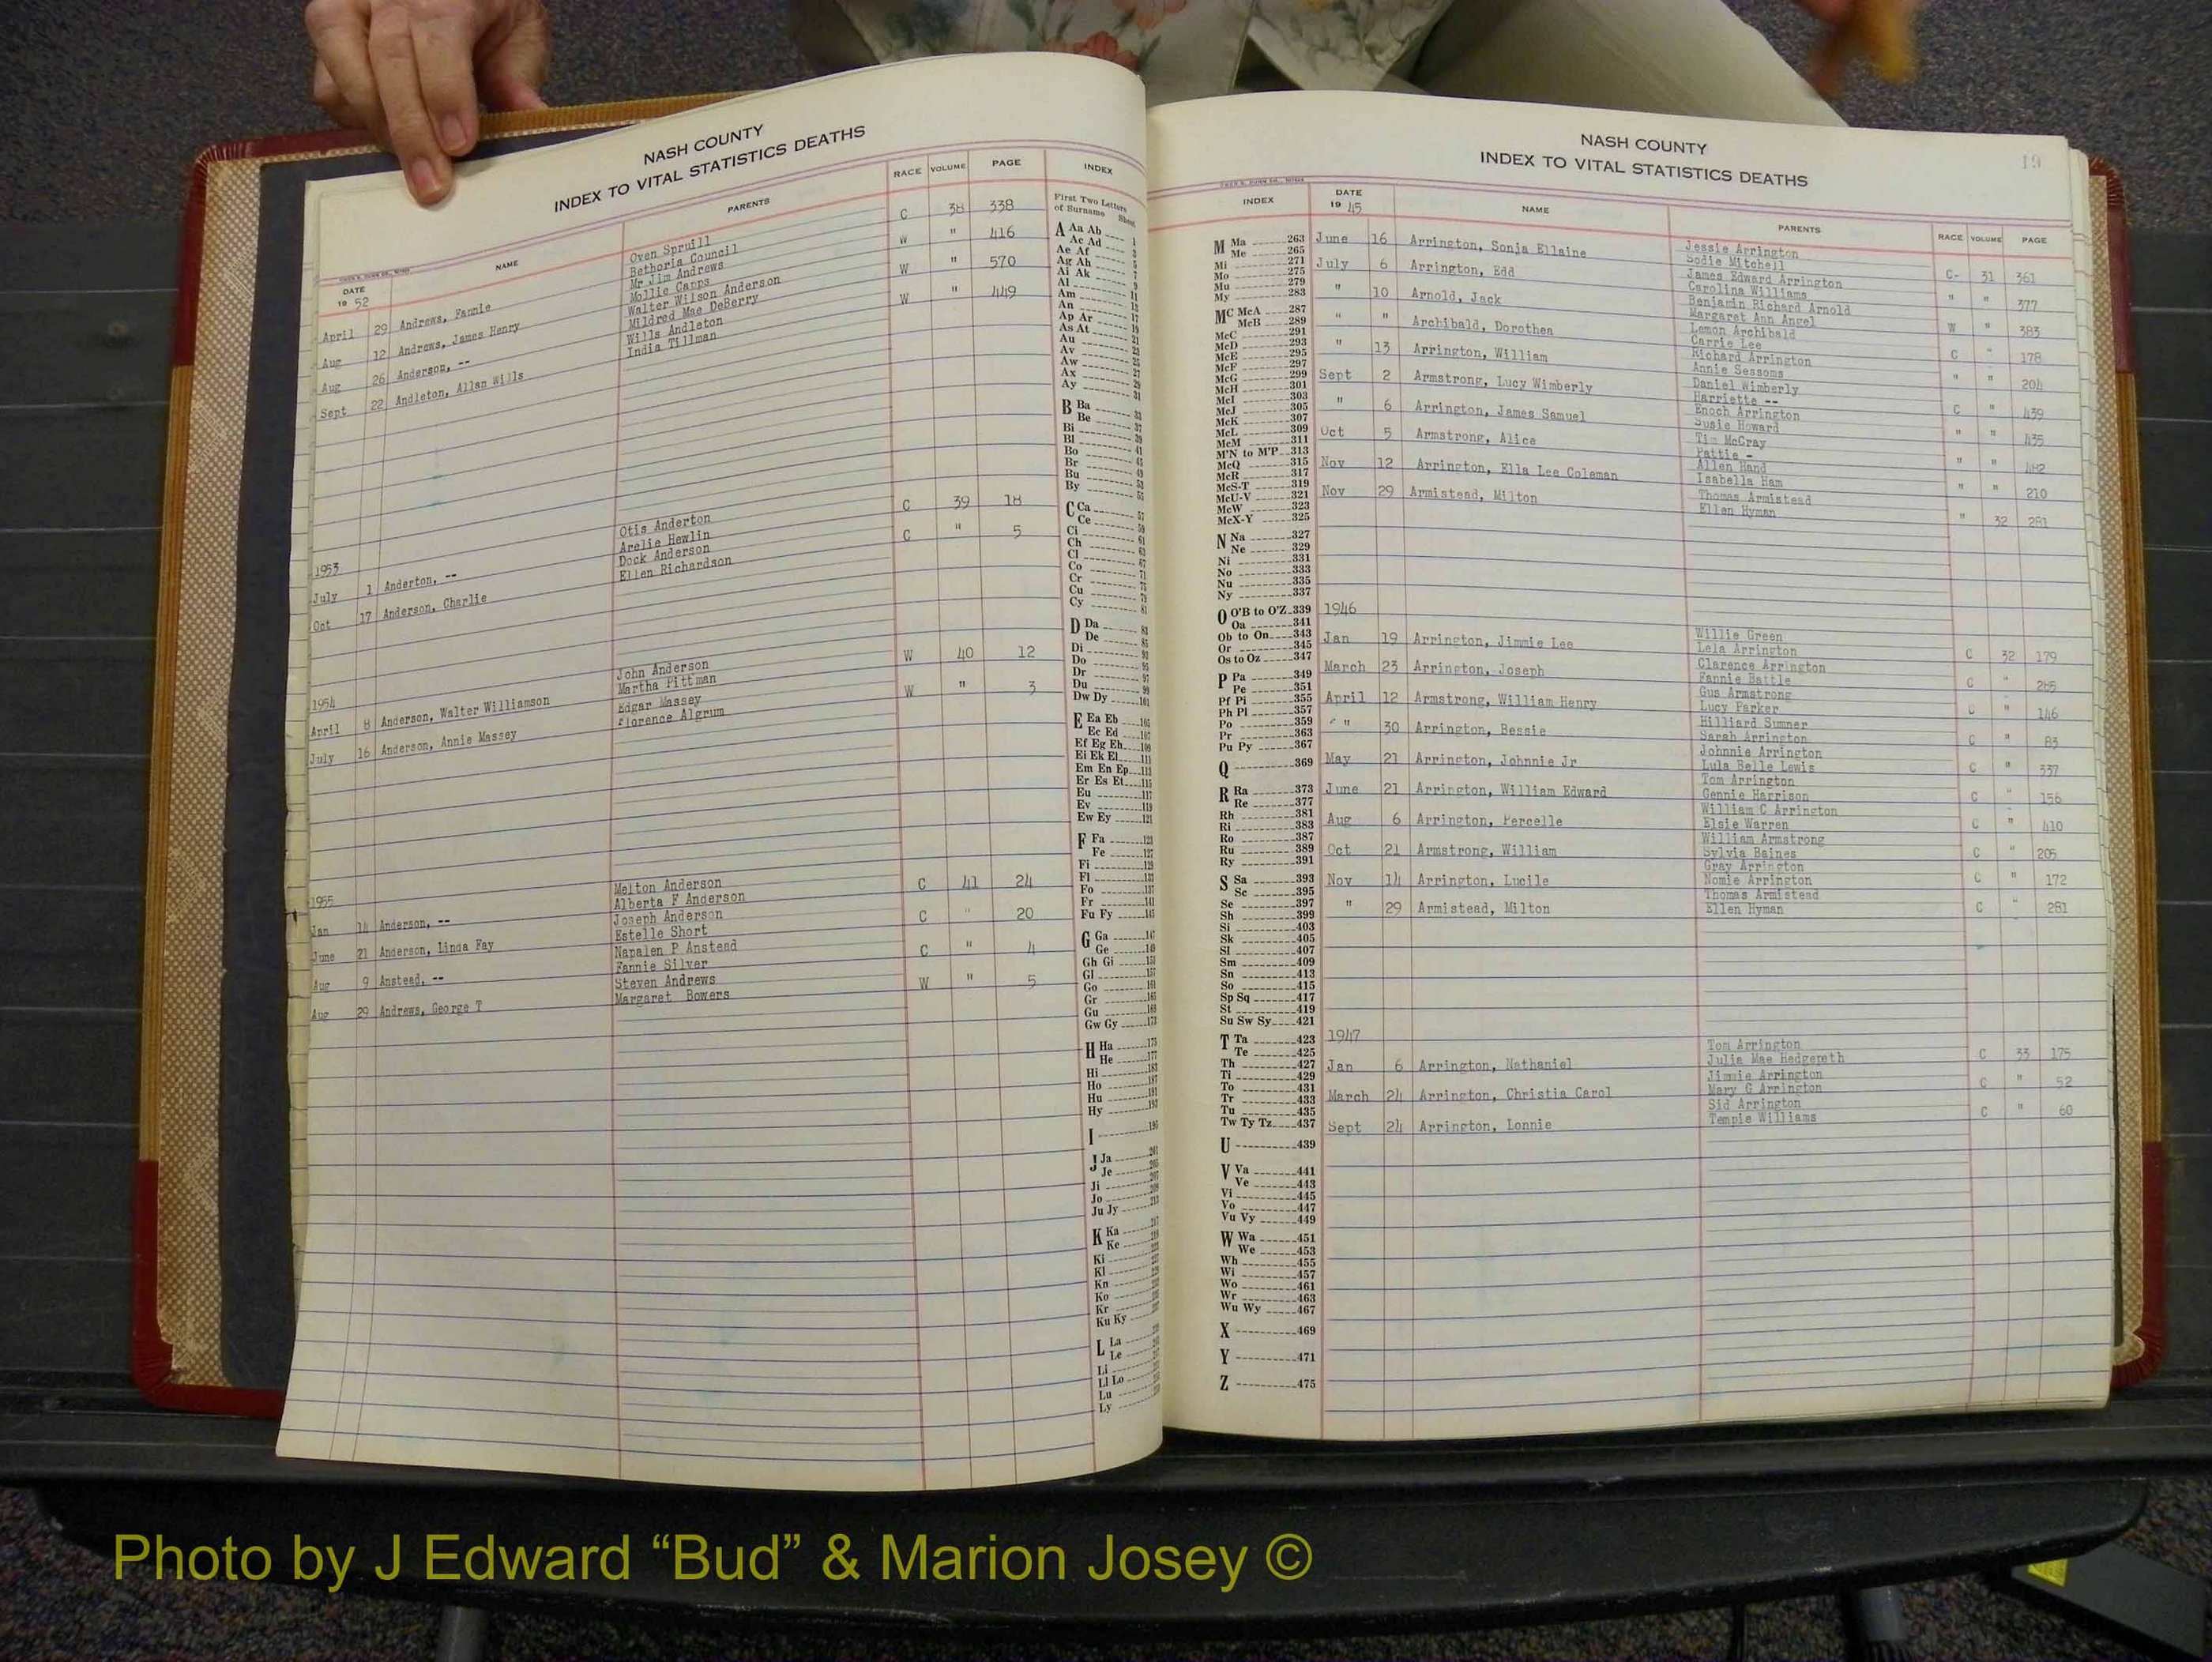 NASH COUNTY
INDEX TO VITAL STATISTICS DEATHS
DATE NAME PARENTS RACE VOLUME PAGE
19 52
April 29 Andrews, Fannie Oven Spruill C 38 338
Bethoria Council
Aug 12 Andrews, James Henry Mr Jim Andrews W " 416
Mollie Capps
Aug 26 Anderson, -- Walter Wilson Anderson W " 570
Mildred Mae DeBerry
Sept 22 Andleton, Allan Wills Wills Andleton W " 449
India Tillman
1953
July 1 Anderton, -- Otis Anderton C 39 18
Arelie Hewlin
Oct 17 Anderson, Charlie Dock Anderson C " 5
Ellen Richardson
1954
April 8 Anderson, Walter Williamson John Anderson W 40 12
Martha Pittman
July 16 Anderson, Annie Massey Edgar Massey W " 3
Florence Algrum
1955
Jan 14 Anderson, -- Melton Anderson C 41 24
Alberta F Anderson
June 21 Anderson, Linda Fay Joseph Anderson C " 20
Estelle Short
Aug 9 Anstead, -- Napalen P Anstead C " 4
Fannie Silver
Aug 29 Andrews, George T Steven Andrews W " 5
Margaret Bowers
INDEX
First Two Letters
of Surname Sheet
A Aa Ab 1
Ac Ad
Ae Af
Ag Ah
Ai Ak
Al
Am 11
An
Ap Ar
As At
Au
Av
Aw
Ax
Ay
B Ba
Be
Bi
Bl
Bo
Br
Bu
By
C Ca
Ce
Ci
Ch
Cl
Co
Cr
Cu
Cy
D Da
De
Di
Do
Dr
Du
Dw Dy
E Ea Eb
Ec Ed
Ef Eg Eh
Ei Ek El
Em En Ep
Er Es Et
Eu
Ev
Ew Ey
F Fa
Fe
Fi
Fl
Fo
Fr
Fu Fy
G Ga
Ge
Gh Gi
Gl
Go
Gr
Gu
Gw Gy
H Ha
He
Hi
Ho
Hu
Hy
I
J Ja
Je
Ji
Jo
Ju Jy
K Ka
Ke
Ki
Kl
Kn
Ko
Kr
Ku Ky
L La
Le
Li
Ll Lo
Lu
Ly
19
NASH COUNTY
INDEX TO VITAL STATISTICS DEATHS
INDEX
M Ma 263
Me 265
Mi 271
Mo 275
Mu 279
My 283
MC McA 287
McB 289
McC 291
McD 293
McE 295
McF 297
McG 299
McH 301
McI 303
McJ 305
McK 307
McL 309
McM 311
M'N to M'P 313
McQ 315
McR 317
McS-T 319
McU-V 321
McW 323
McX-Y 325
N Na 327
Ne 329
Ni 331
No 333
Nu 335
Ny 337
O O'B to O'Z 339
Oa 341
Ob to On 343
Or 345
Os to Oz 347
P Pa 349
Pe 351
Pf Pi 355
Ph Pl 357
Po 359
Pr 363
Pu Py 367
Q 369
R Ra 373
Re 377
Rh 381
Ri 383
Ro 387
Ru 389
Ry 391
S Sa 393
Sc 395
Se 397
Sh 399
Si 403
Sk 405
Sl 407
Sm 409
Sn 413
So 415
Sp Sq 417
St 419
Su Sw Sy 421
T Ta 423
Te 425
Th 427
Ti 429
To 431
Tr 433
Tu 435
Tw Ty Tz 437
U 439
V Va 441
Ve 443
Vi 445
Vo 447
Vu Vy 449
W Wa 451
We 453
Wh 455
Wi 457
Wo 461
Wr 463
Wu Wy 467
X 469
Y 471
Z 475
DATE NAME PARENTS RACE VOLUME PAGE
19 45
June 16 Arrington, Sonja Ellaine Jessie Arrington C- 31 361
Sadie Mitchell
July 6 Arrington, Edd James Edward Arrington " " 377
Carolina Williams
" 10 Arnold, Jack Benjamin Richard Arnold W " 383
Margaret Ann Angel
" " Archibald, Dorothea Lemon Archibald C " 178
Carrie Lee
" 13 Arrington, William Richard Arrington " " 204
Annie Sessoms
Sept 2 Armstrong, Lucy Wimberly Daniel Wimberly C " 439
Harriette --
" 6 Arrington, James Samuel Enoch Arrington " " 435
Susie Howard
Oct 5 Armstrong, Alice Tim McCray " " 482
Pattie -
Nov 12 Arrington, Ella Lee Coleman Allen Hand " " 210
Isabella Ham
Nov 29 Armistead, Milton Thomas Armistead " 32 281
Ellen Hyman
1946
Jan 19 Arrington, Jimmie Lee Willie Green C 32 179
Lela Arrington
March 23 Arrington, Joseph Clarence Arrington C " 285
Fannie Battle
April 12 Armstrong, William Henry Gus Armstrong C " 146
Lucy Parker
" 30 Arrington, Bessie Hilliard Sumner C " 83
Sarah Arrington
May 21 Arrington, Johnnie Jr Johnnie Arrington C " 337
Lula Belle Lewis
June 21 Arrington, William Edward Tom Arrington C " 156
Gennie Harrison
Aug 6 Arrington, Percelle William C Arrington C " 410
Elsie Warren
Oct 21 Armstrong, William William Armstrong C " 205
Sylvia Baines
Nov 14 Arrington, Lucile Gray Arrington C " 172
Nomie Arrington
" 29 Armistead, Milton Thomas Armistead C " 281
Ellen Hyman
1947
Jan 6 Arrington, Nathaniel Tom Arrington C 33 175
Julia Mae Hedgepeth
March 24 Arrington, Christia Carol Jimmie Arrington C " 52
Mary G Arrington
Sept 24 Arrington, Lonnie Sid Arrington C " 60
Tempie Williams
Photo by J Edward “Bud” & Marion Josey ©